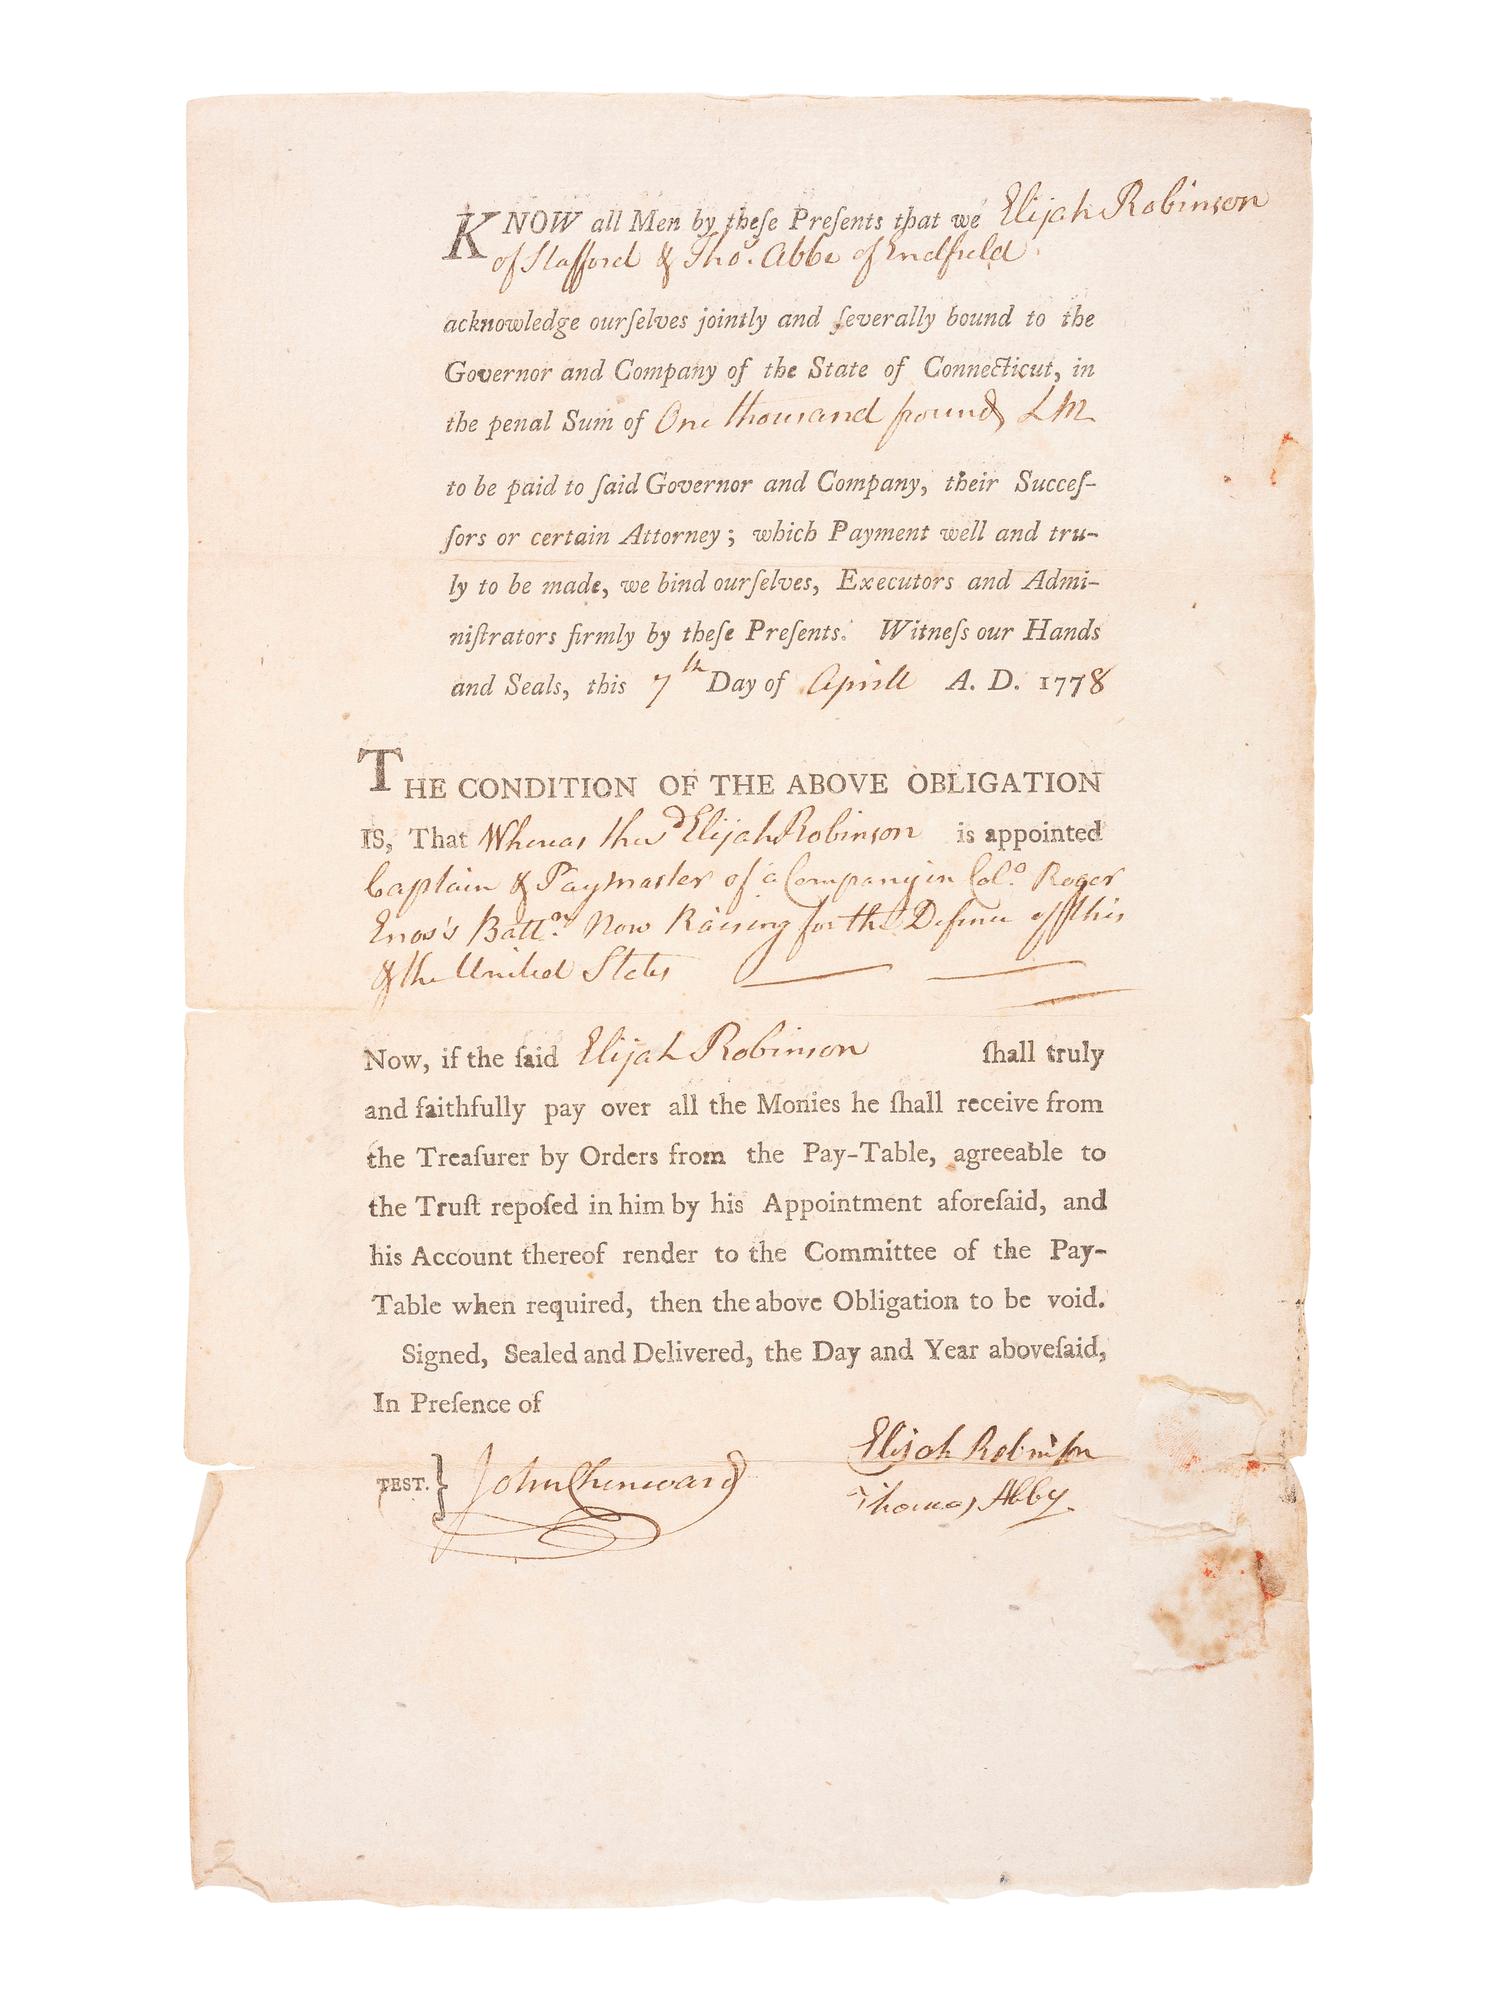 KNOW all Men by theſe Preſents that we Elijah Robinson
of Stafford & Thos. Abbe of Endfield
acknowledge ourſelves jointly and ſeverally bound to the
Governor and Company of the State of Connecticut, in
the penal Sum of One thousand pounds LM
to be paid to ſaid Governor and Company, their Succeſ-
ſors or certain Attorney; which Payment well and tru-
ly to be made, we bind ourſelves, Executors and Admi-
niſtrators firmly by theſe Preſents. Witneſs our Hands
and Seals, this 7th Day of Aprill A. D. 1778
THE CONDITION OF THE ABOVE OBLIGATION
IS, That Whereas the sd Elijah Robinson is appointed
Captain & Paymaster of a Company in Colo. Roger
Enos's Battn. Now Raising for the Defence of this
& the United States
Now, if the ſaid Elijah Robinson ſhall truly
and faithfully pay over all the Monies he ſhall receive from
the Treaſurer by Orders from the Pay-Table, agreeable to
the Truſt repoſed in him by his Appointment aforeſaid, and
his Account thereof render to the Committee of the Pay-
Table when required, then the above Obligation to be void.
Signed, Sealed and Delivered, the Day and Year aboveſaid,
In Preſence of
Elijah Robinson
TEST. } John Chenward
Thomas Abby.